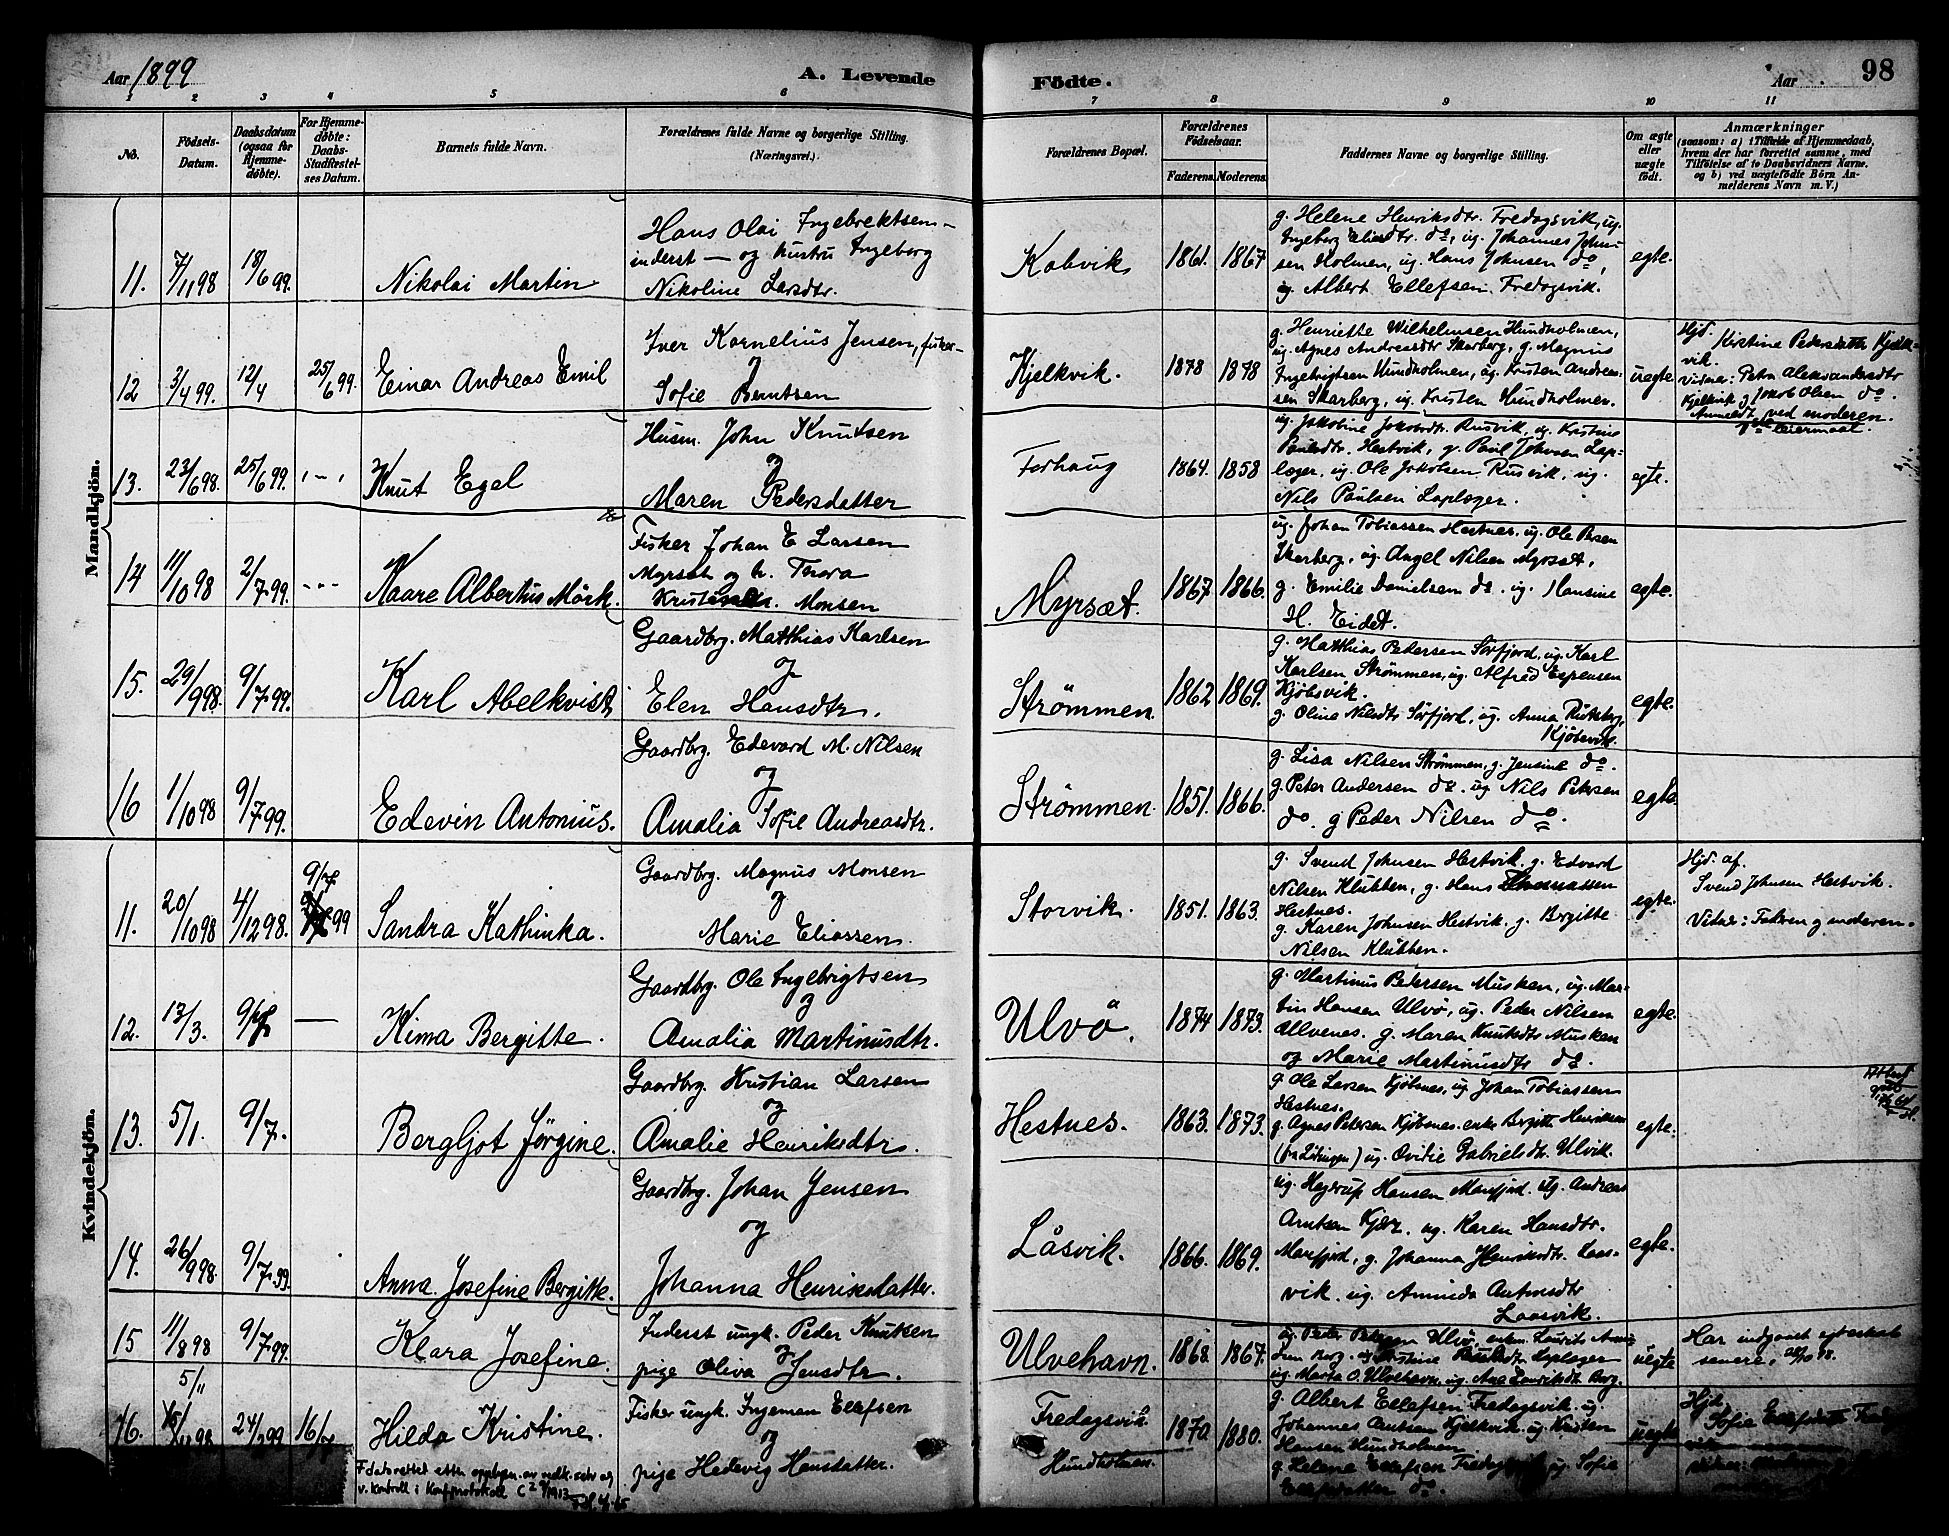 Aar 1899
A. Levende
Födte.
Aar
98
1 2 3 4 5 6 7 8 9 10 11
No.
Födsels-
Datum.
Daabsdatum
(ogsaa for
Hjemme-
döbte).
For Hjemme-
döbte:
Daabs-
Stadfæstel-
ses Datum.
Barnets fulde Navn.
Forældrenes fulde Navne og borgerlige Stilling.
(Næringsvei.)
Forældrenes Bopæl.
Forældrenes
Födselsaar.
Faderens. Moderens.
Faddernes Navne og borgerlige Stilling.
Om ægte
eller
uægte
födt.
Anmærkninger
(saasom: a) i Tilfælde af Hjemmedaab,
hvem der har forrettet samme, med
Tilföielse af to Daabsvidners Navne,
og b) ved uægtefödte Börn An-
melderens Navn m. V.)
Mandkjön.
11. 7/11 98 18/6 99. Nikolai Martin
Hans Olai Ingebrektsen -
inderst - og hustru Ingeborg
Nikoline Larsdtr.
Kobvik 1861. 1867
g. Helene Henriksdtr. Fredagsvik, ug.
Ingeborg Eliasdtr. do, ug. Johannes John-
sen Holmen, ug. Hans Johnsen do,
ug Albert Ellefsen Fredagsvik.
egte.
12 3/4 99. 12/4 25/6 99. Einar Andreas Emil
Iver Kornelius Jensen, fisker-
og
Sofie Berntsen
Kjelkvik. 1878 1878
g. Henriette Wilhelmsen Hundholmen,
ug. Agnes Andreasdtr Skarberg, g. Magnus
Ingebrigtsen Hundholmen, ug. Kristen Andrea-
sen Skarberg, ug. Kristen Hundholmen.
uegte.
Hjd. Kirstine Pedersdatter Kjelk-
vik.
Vidner: Petra Aleksandersdtr
Kjelkvik og Jakob Olsen do.
Anmeldt ved moderen.
leiermaal.
13. 23/6 98. 25/6 99. Knut Egel
Husm. John Knutsen
og
Maren Pedersdatter
Forhaug 1864. 1858
ug. Jakobine Jakobsdtr. Rusvik, ug. Kristine
Paulsdtr. Hestvik, g. Paul Johnsen Lap-
læger, ug. Ole Jakobsen Rusvik, ug.
Nils Paulsen Laplæger.
egte.
14 11/10 98 2/7 99. Kaare Albertus Mörk.
Fisker Johan E Larsen
Myrsæt og h. Thora
Monsen
Myrsæt. 1867 1866.
ug. Johan Tobiassen Hestnes, ug. Ole
Skarberg, ug. Angel Nilsen Myrsæt,
g. Emilie Danielsen do. ug. Hansine
H. Eidet.
egte.
15. 29/9 98. 9/7 99. Karl Abelkvist
Gaardbrg. Matthias Karlsen
og
Elen Hansdtr.
Strømmen. 1862 1869.
g. Matthias Pedersen Sørfjord, ug. Karl
Karlsen Strømmen, ug. Alfred Espensen
Kjøbsvik.
g. Olina Nilsdtr Sørfjord, ug. Anna
Kjøbsvik.
egte.
16 1/10 98 9/7 99. Edevin Antonius.
Gaardbrg. Edevard M. Nilsen
og
Amalia Sofie Andreasdtr.
Strømmen. 1851. 1866.
g. Lisa Nilsen Strømmen, g. Jensine do.
g. Peter Andersen do. ug Nils Petersen
do. g Peder Nilsen do
egte.
Kvindekjön.
11. 20/10 98 4/12 98. 9/7 99 Sandra Kathinka.
Gaardbrg. Magnus Monsen
og
Marie Eliassen.
Storvik. 1851. 1863.
g. Svend Johnsen Hestvik. g. Edvard
Nilsen Klubben, g. Hans Thomassen
Hestnes.
g. Karen Johnsen Hestvik. g. Birgitte
Nilsen Klubben.
egte.
Hjd. af.
Svend Johnsen Hestvik.
Vidner: Faderen og moderen.
12. 13/3. 9/7 Kima Bergitte.
Gaardbrg. Ole Ingebrigtsen
og
Amalia Martinusdtr.
Ulvö. 1874 1873.
g. Martinus Petersen Musken, ug. Mar-
tin Hansen Ulvø, ug. Peder Nilsen
Ulvenes. g. Maren Knutsdtr Musken
og Marie Martinusdtr do.
egte.
13. 5/1. 9/7. Bergljot Jørgine.
Gaardbrg. Kristian Larsen
og
Amalie Henriksdtr.
Hestnes. 1863. 1873.
g. Ole Larsen Kjøbnes, ug. Johan Tobiassen
Hestnes.
g. Agnes Petersen Kjøbnes. enke Birgitte Henriksen
(fra Lödingen) ug. Ovidie Gabrielsdtr. Ulvik.
egte.
14. 26/9 98. 9/7 99. Anna Josefine Bergitte.
Gaardbrg. Johan Jensen
og
Johanna Henriksdatter.
Låsvik. 1866. 1869.
ug. Hagerup Hansen Manfjord. ug. Andreas
Arntsen Kjær. ug. Karen Hansdtr.
Manfjord, g. Johanna Henriksdtr. Laas-
vik. ug. Aminda Antonsdtr
Laasvik.
egte.
15 11/8 98 9/7 99. Klara Josefine.
Inderst ungk. Peder Knutsen
og
pige Oliva Jensdtr.
Ulvehavn. 1868. 1867.
ug. Peder Petersen Ulvø, enkm. Laurits
Borg. ug Kristine Laplæger
ug. Marta O. Ulvehavn, ug. Ane Lauritsdtr Borg.
uegte
Har indgaaet egteskab
senere,
16. 5/11 15/11 98 24/2 99 16/7 Hilda Kristine.
Fisker ungk. Ingeman Ellefsen
og
pige Hedevig Hansdatter.
Fredagsvik
Hundholmen. 1870. 1880.
g. Albert Ellefsen Fredagsvik. ug
Johannes Arntsen Kjelkvik. ug. Kristen
Hansen Hundholmen
g. Helene Ellefsen Fredagsvik, ug. Sofie
Ellefsdatter do.
uegte
Hjd.
Sofie Ellefsdatter Fredags
vik
F dato rettet etter opplysn. av vedk. selv og
v. kontroll i Konf.protokoll